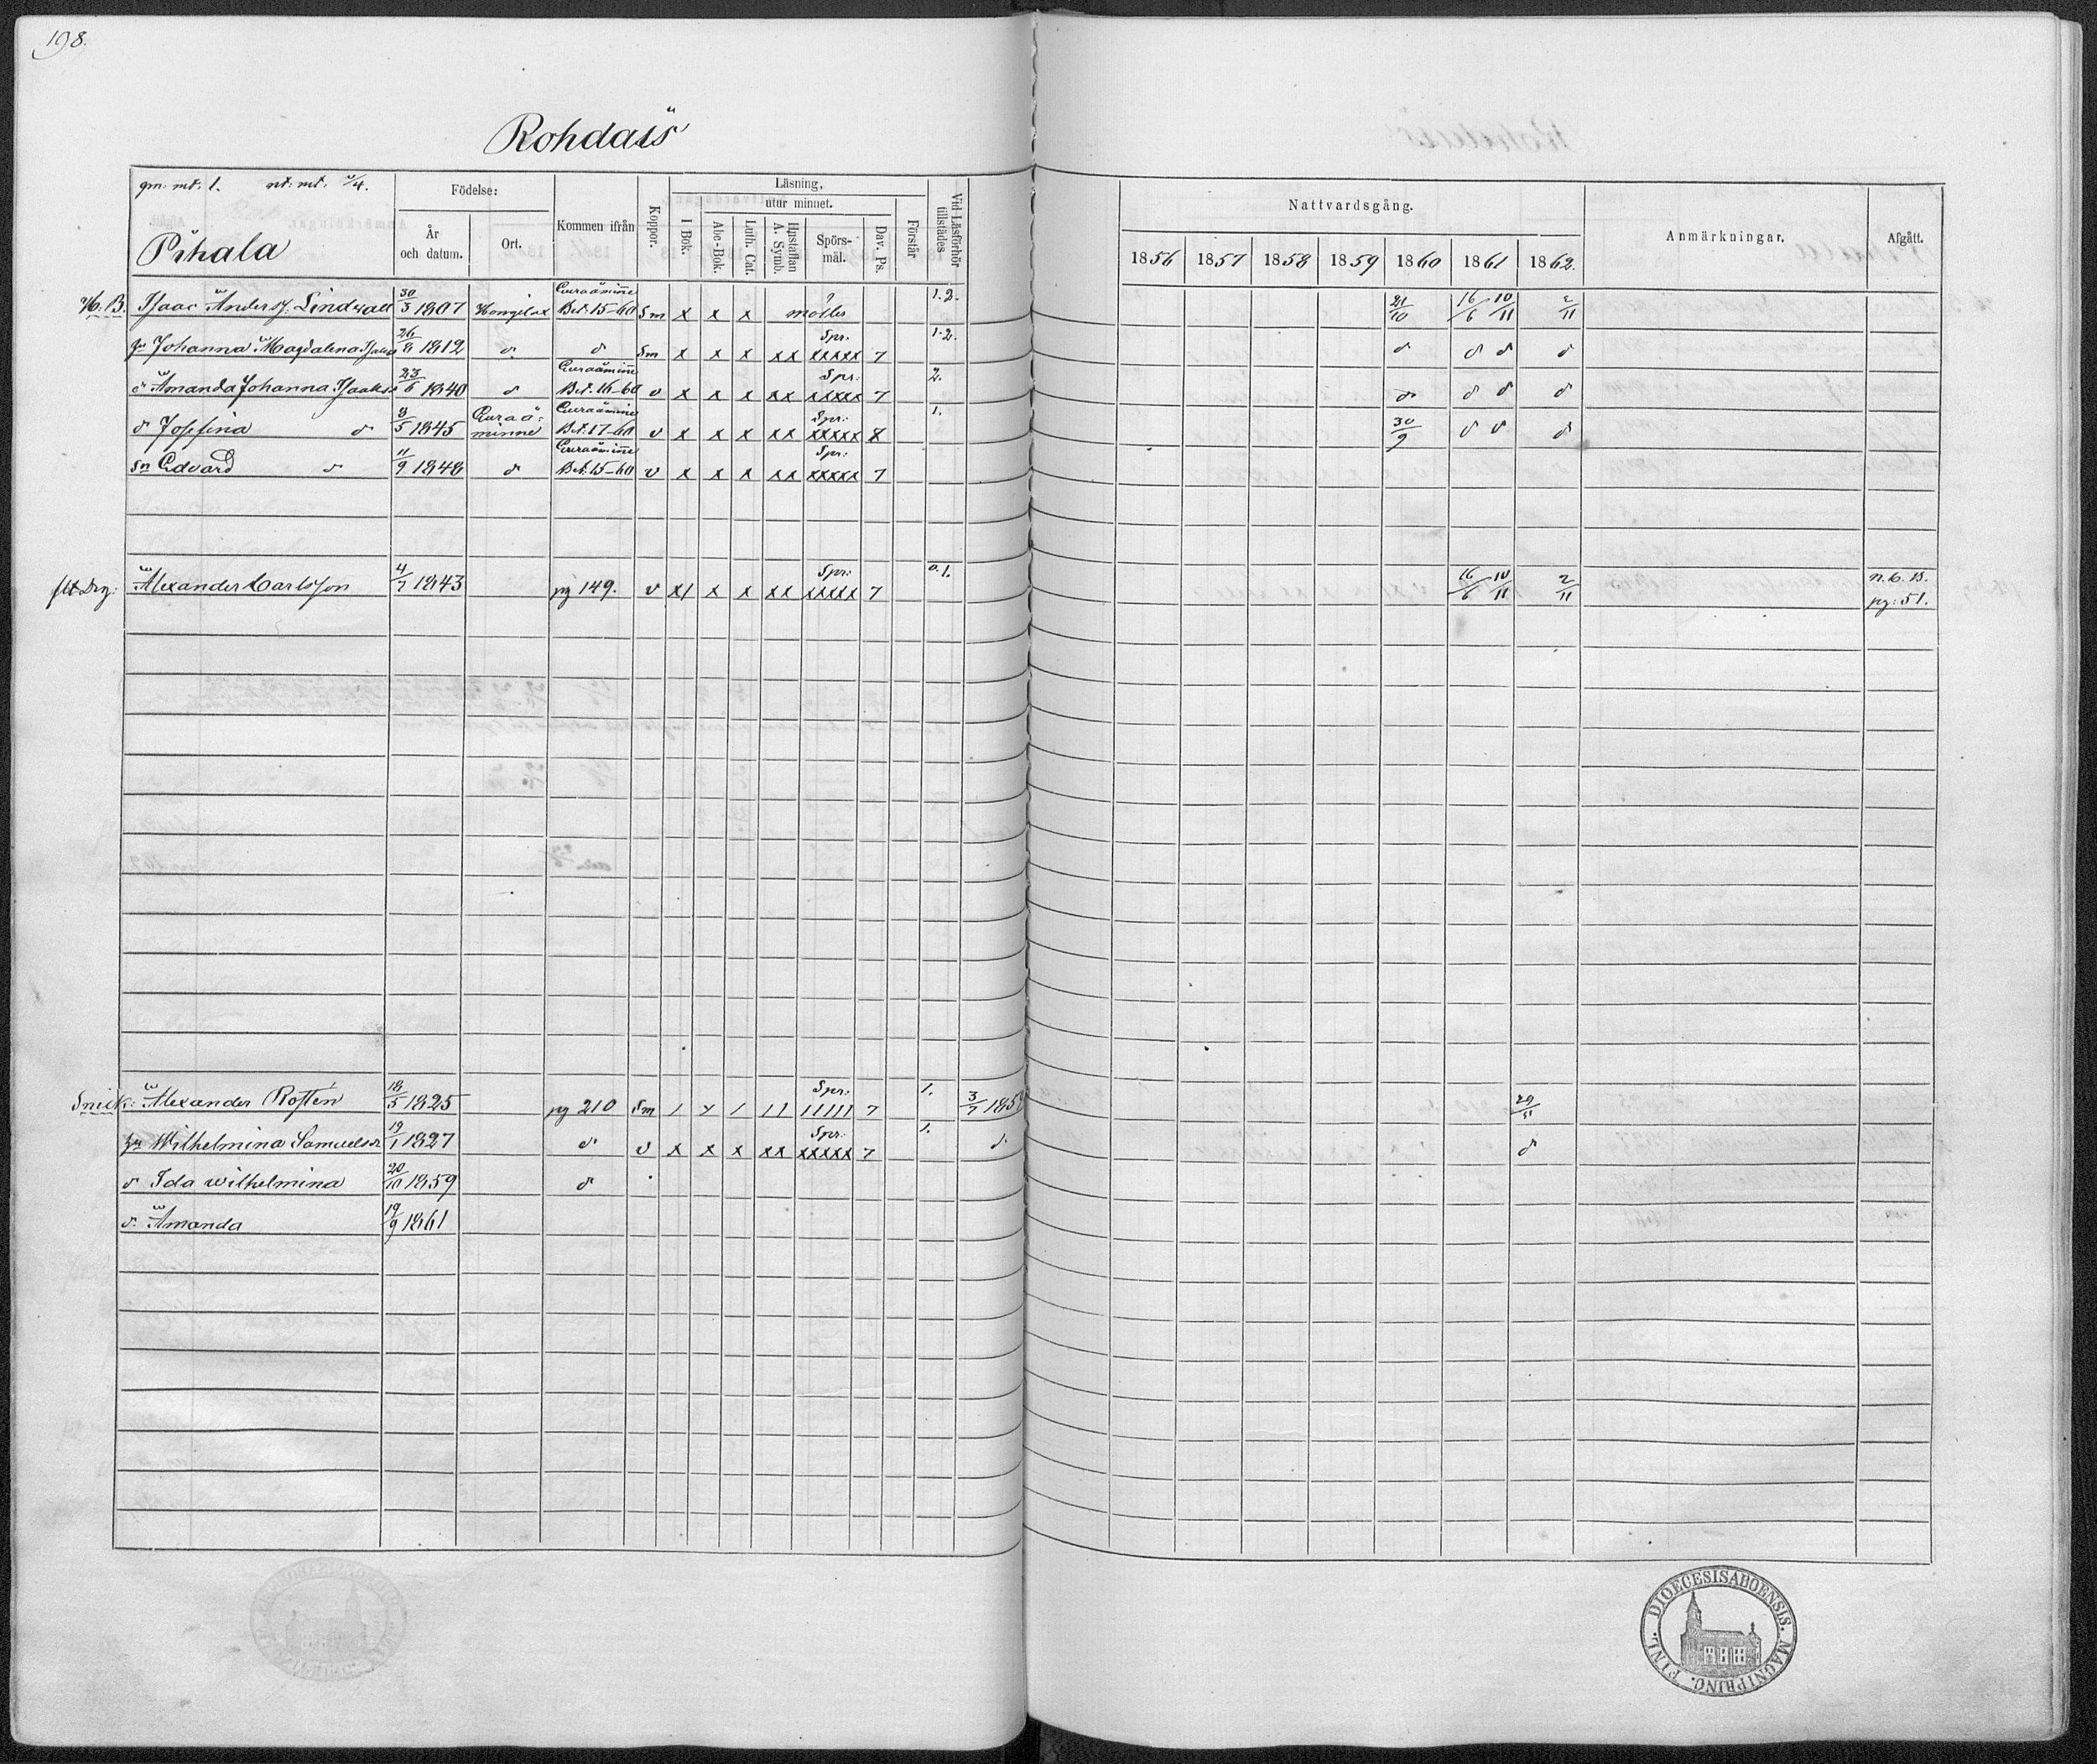 198.
Rohdais
gm: mt: 1. nt: mt:
Pihala
Födelse:
År och datum.
Ort.
Kommen ifrån
Koppor.
Läsning,
I Bok.
utur minnet.
Abc-Bok.
Luth. Cat.
Hustaflan A. Symb.
Spörs-mål.
Dav. Ps.
Förstår
Vid Läsförhör tillstädes
Nattvardsgång.
1856 1857 1858 1859 1860 1861 1862.
Anmärkningar.
Afgått.
H: B. Isaac Anders. Lindwall 30/3 1807 Bet. 15-60 Sm x x x 1. 2. 21/10 16/6 10/11 2/11
Johanna Magdalena 26/8 1812 d. d Sm x x x xx Spr. xxxxx 7 1. 2. d d d d
d. Amanda Johanna Isaaks 23/6 1840 d Euraåminne Bet. 16-60 v x x x xx Spr: xxxxx 7 2. d d d d
d. Josefina d 8/5 1845 Euraå:minne Euraåminne Bet. 17-60 v x x x xx Spr: xxxxx 8 1. 30/9 d d d
sn Edvard d 11/9 1848 d Euraåminne Bet. 15-60 v x x x xx Spr: xxxxx 7
Alexander Carlsson 4/7 1843 pg 149. v x1 x x xx Spr: xxxxx 7 0. 1. 16/6 10/11 2/11 n. b. B. pg: 51.
Snick: Alexander Rostén 18/5 1825 pg 210 Sm 1 x 1 11 Spr: 11111 7 1. 3/7 29/11
Wilhelmina Samuelsdr 19/1 1827 d. v x x x xx Spr: xxxxx 7 1. d. d
d Ida wilhelmina 20/10 1859 d
d. Amanda 19/9 1861
DIOECESIS ABOENSIS. MAGNI PRINC. FINL.